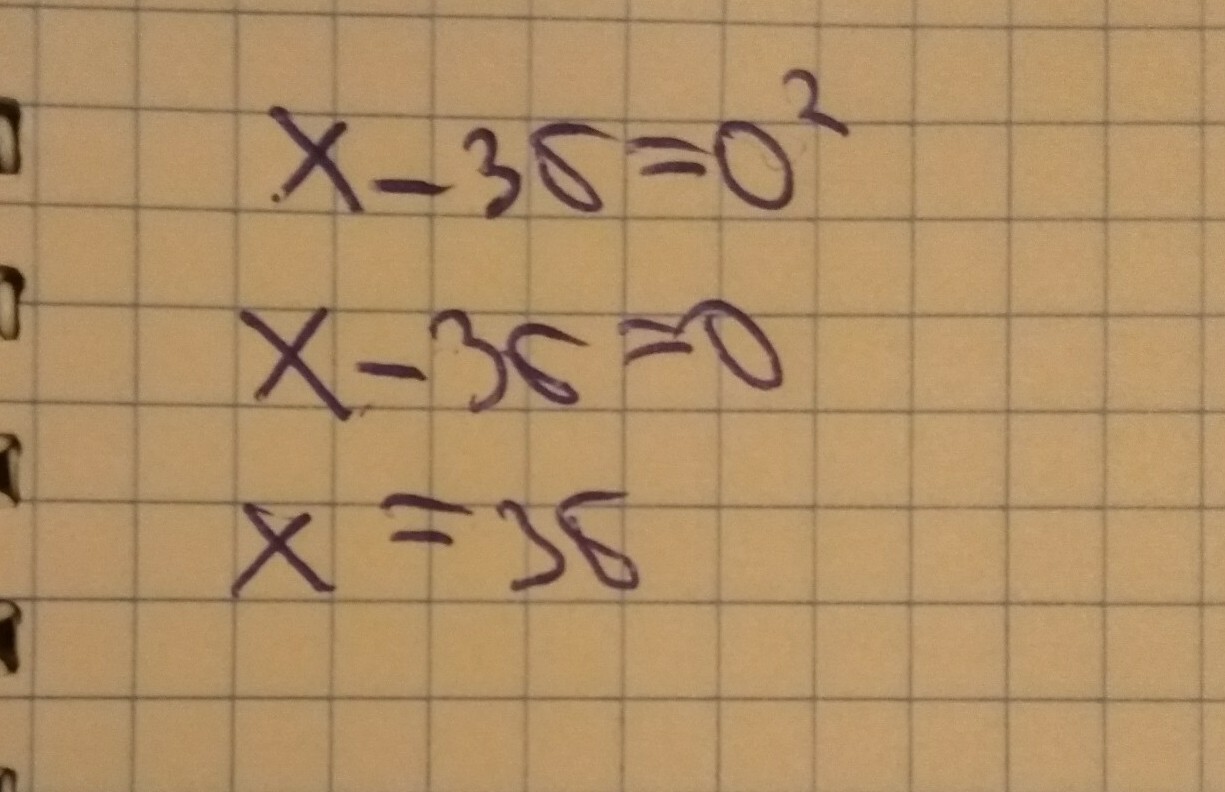 x - 36 = 0²
x - 36 = 0
x = 36